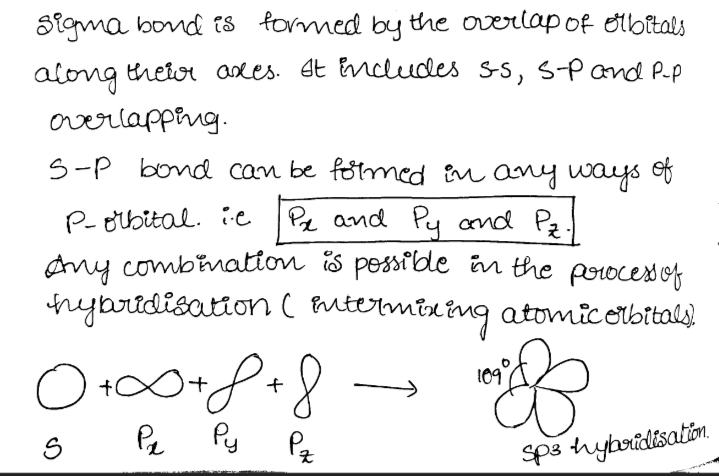 Sigma bond is formed by the overlap of orbitals
along their axes. It includes s-s, s-p and p-p
overlapping.
S-P bond can be formed in any ways of
P-orbital. i.e Px and Py and Pz.
Any combination is possible in the process of
hybridisation ( intermixing atomic orbitals).
+ + + → 109°
S Px Py Pz sp3 hybridisation.